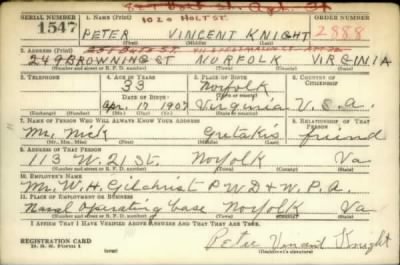 1020 HOLT ST.
SERIAL NUMBER 1. NAME (Print) ORDER NUMBER
1547 PETER VINCENT KNIGHT 2888
(First) (Middle) (Last)
2. ADDRESS (Print)
249 BROWNING ST NORFOLK VIRGINIA
(Number and street or R. F. D. number) (Town) (County) (State)
3. TELEPHONE 4. AGE IN YEARS 5. PLACE OF BIRTH 6. COUNTRY OF CITIZENSHIP
33 Norfolk
DATE OF BIRTH (Town or county)
Apr. 17 1907 Virginia U.S.A.
(Exchange) (Number) (Mo.) (Day) (Yr.) (State or country)
7. NAME OF PERSON WHO WILL ALWAYS KNOW YOUR ADDRESS 8. RELATIONSHIP OF THAT PERSON
Mr. Nick Gretakis friend
(Mr., Mrs., Miss) (First) (Middle) (Last)
9. ADDRESS OF THAT PERSON
113 W. 21 St. Norfolk Va
(Number and street or R. F. D. number) (Town) (County) (State)
10. EMPLOYER'S NAME
Mr. W. H. Gilchrist P.W.D & W.P.A.
11. PLACE OF EMPLOYMENT OR BUSINESS
Naval Operating base Norfolk Va
(Number and street or R. F. D. number) (Town) (County) (State)
I AFFIRM THAT I HAVE VERIFIED ABOVE ANSWERS AND THAT THEY ARE TRUE.
REGISTRATION CARD Peter Vincent Knight
D. S. S. Form 1 (Registrant's signature)